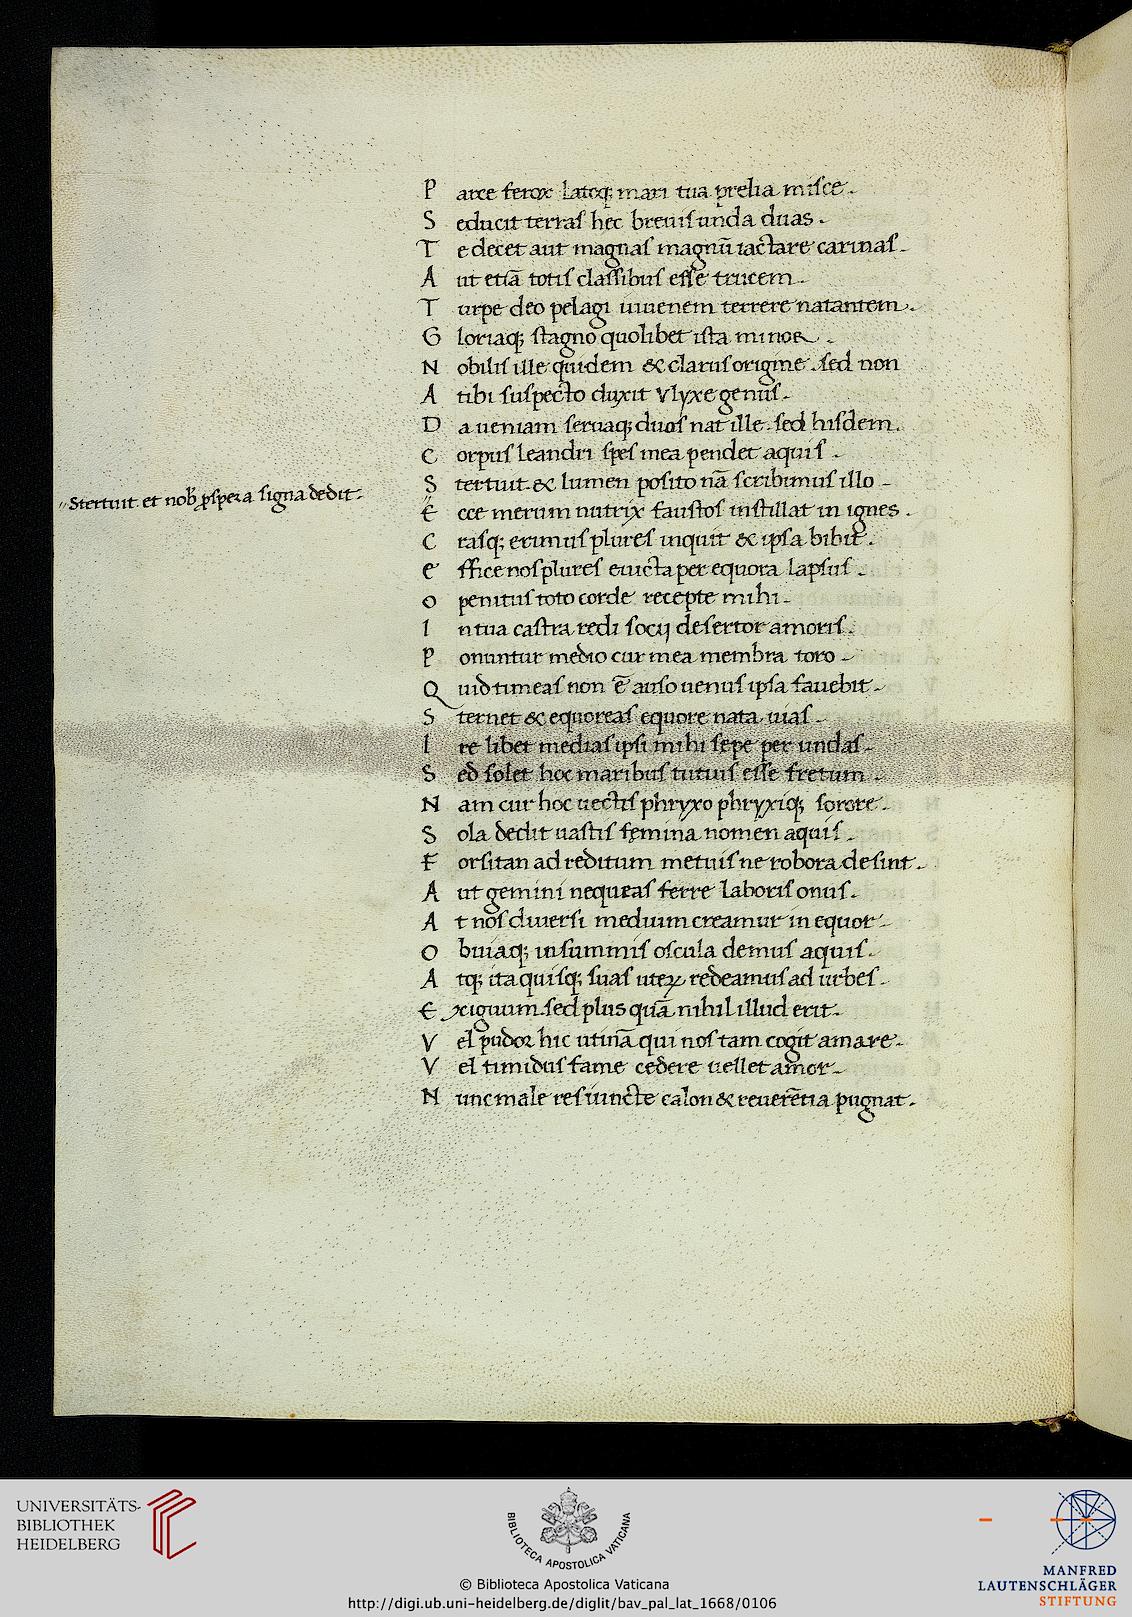 P arce ferox Latoq; mari tua prelia misce.
S educit terras hec breuis unda duas.
T e decet aut magnas magnũ iactare carinas.
A ut etiã totis classibus esse trucem.
T urpe deo pelagi iuuenem terrere natantem.
G loriaq; stagno quolibet ista minor.
N obilis ille quidem & clarus origine. sed non
A tibi suspecto duxit vlyxe genus.
D a ueniam seruaq; duos nat ille. sed hisdem.
C orpus leandri spes mea pendet aquis.
S tertuit & lumen posito nã scribimus illo
"Stertuit et nob̃ ꝑspera signa dedit.
E cce merum nutrix faustos instillat in ignes.
C rasq; erimus plures inquit & ipsa bibit.
e ffice nos plures euicta per equora lapsus.
O penitus toto corde recepte mihi.
I n tua castra redi socij desertor amoris.
P onuntur medio cur mea membra toro
Q uid timeas non ẽ auso uenus ipsa fauebit.
S ternet & equoreas equore nata uias.
I re libet medias ipsi mihi sepe per undas.
S ed solet hoc maribus tutuis esse fretum.
N am cur hoc uectis phryxo phryxiq; sorore.
S ola dedit uastis femina nomen aquis.
F orsitan ad reditum metuis ne robora desint.
A ut gemini nequeas ferre laboris onus.
A t nos diuersi medium creamur in equor
O buiaq; in summis oscula demus aquis.
A tq; ita quisq; suas uterꝝ redeamus ad urbes.
E xiguum. sed plus quã nihil illud erit.
V el pudor hic utinã qui nos tam cogit amare.
V el timidus fame cedere uellet amor.
N unc male res iuncte calon & reuerẽtia pugnat.
UNIVERSITÄTS-
BIBLIOTHEK
HEIDELBERG
BIBLIOTECA APOSTOLICA VATICANA
© Biblioteca Apostolica Vaticana
http://digi.ub.uni-heidelberg.de/diglit/bav_pal_lat_1668/0106
MANFRED
LAUTENSCHLÄGER
STIFTUNG